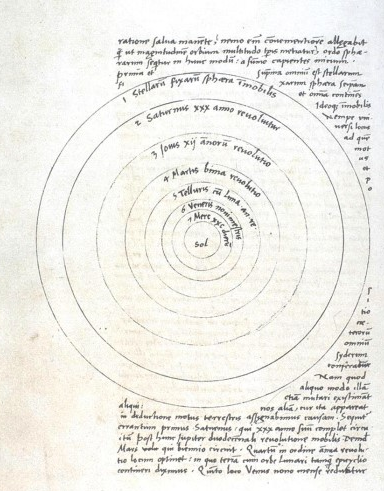 ratione salua manente, nemo em̄ conuenientiore allegabit
q̄ ut magnitudinē orbium multitudo tp̄is metiatur, ordo sphæ-
rarum sequitur in hunc modū: a summo capientes initium.
prima et suprema omniū est stellarum
fixarum sphæra seipsam
et omīa continēs
Ideoq; īmobilis
nempe uni
uersi locus
ad quē
mot
us
et
p
o
1 Stellarū fixarū sphæra īmobilis
2 Saturnus xxx anno reuoluitur
3 Jouis xij annorū reuolutio
4 Martis bima reuolutio
5 Telluris cū Luna an. re.
6 Veneris nonimestris
7 Merc. xxc dierū
Sol
tio
cæ-
terorū
omniū
syderum
conferatur
Nam quod
aliquo modo illā
etiā mutari existimāt
aliqui: nos aliā, cur ita appareat
in deductione motus terrestris assignabimus causam. Sequit͛
errantium primus Saturnus: qui xxx anno suū complet circu
itū. post hunc Iupiter duodecennali reuolutione mobilis. Deinde
Mars uolo qui biennio circuit. Quartū in ordine annua reuolu-
tio locum optinet: in quo terrā cum orbe Lunari tanq̄ epicyclio
contineri diximus. Quinto loco Venus nono mense reducitur